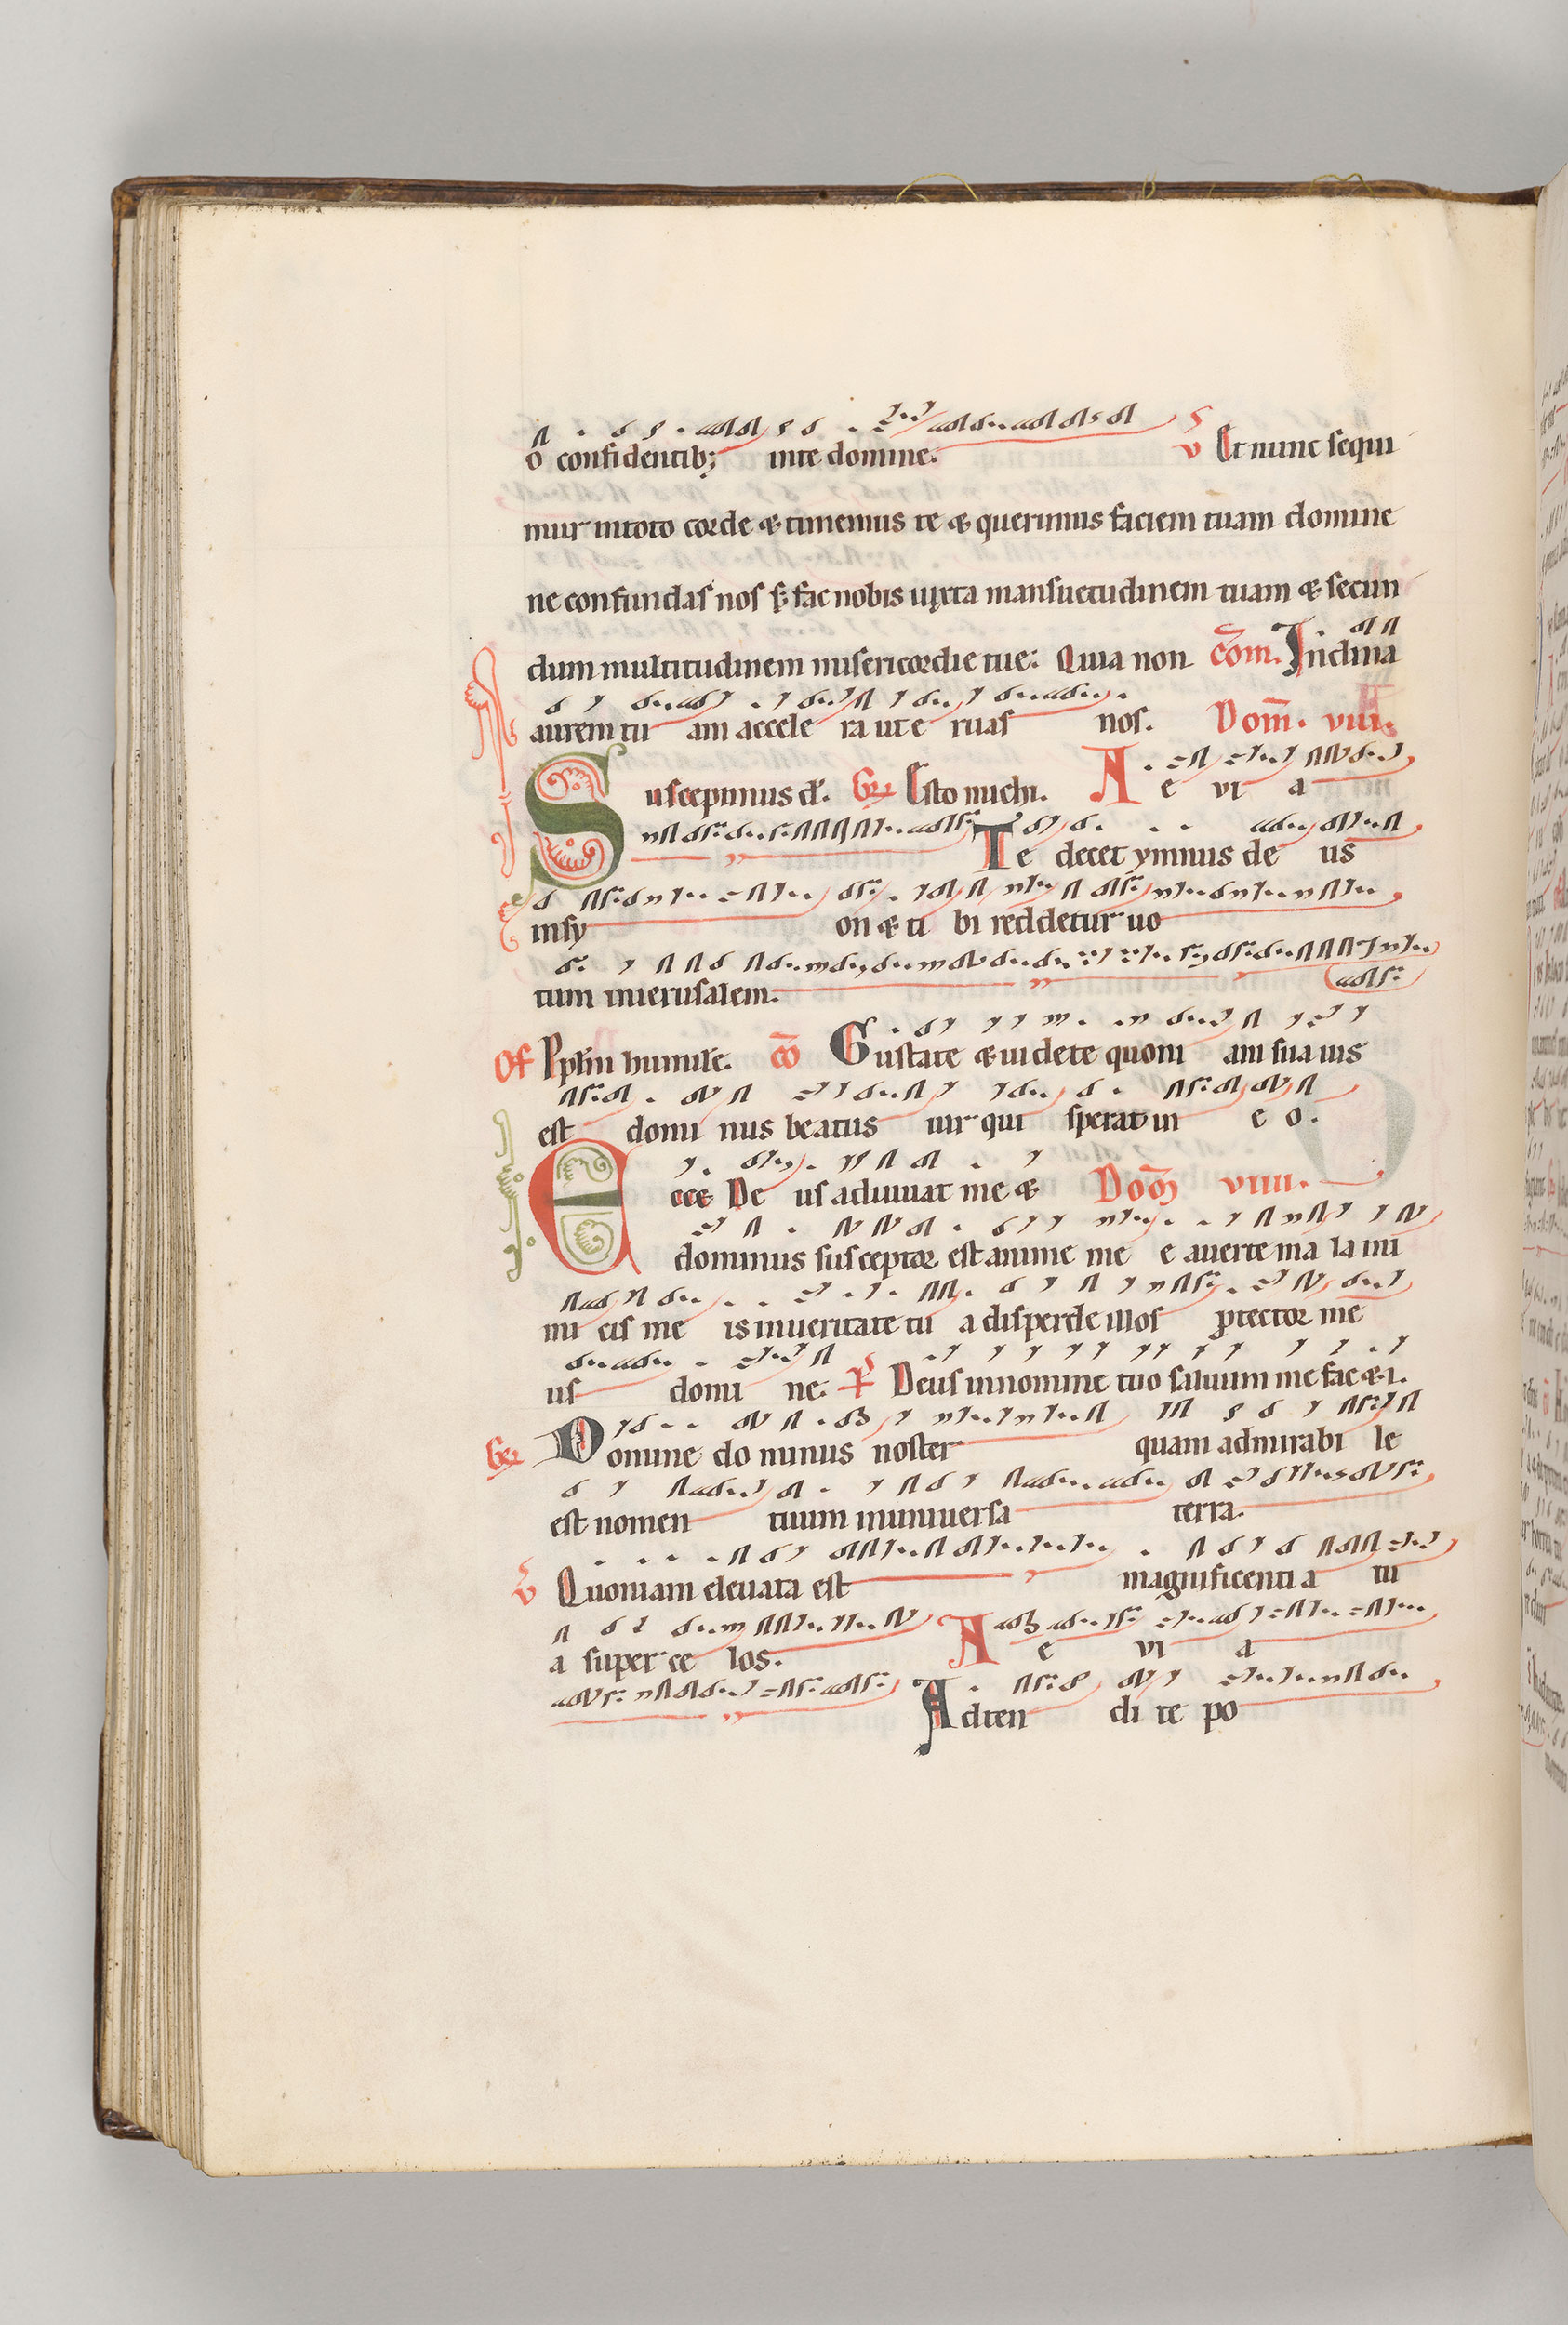 o confidentib; inte domine. v Et nunc sequi
mur intoto corde & timemus te & querimus faciem tuam domine
ne confundas nos s; fac nobis iuxta mansuetudinem tuam & secun
dum multitudinem misericordie tue: Quia non com̄. Inclina
aurem tu am accele ra ut e ruas nos. Dom̄. viii.
Suscepimus d̄s. Gr̄ Esto michi. A e vi a
Te decet ymnus de us
insy on & ti bi reddetur uo
tum inierusalem.
Of Pplm̄ humile. cō Gustate & uidete quoni am sua uis
est domi nus beatus uir qui sperat in e o.
Ecce De us adiuuat me & Dom̄ viiii.
dominus susceptor est anime me e auerte ma la ini
mi cis me is inueritate tu a disperde illos ꝓtector me
us domi ne. P̄ Deus innomine tuo saluum me fac & i.
Gr̄ Domine do minus noster quam admirabi le
est nomen tuum inuniuersa terra.
v Quoniam eleuata est magnificenti a tu
a super ce los. A e vi a
Adten di te po